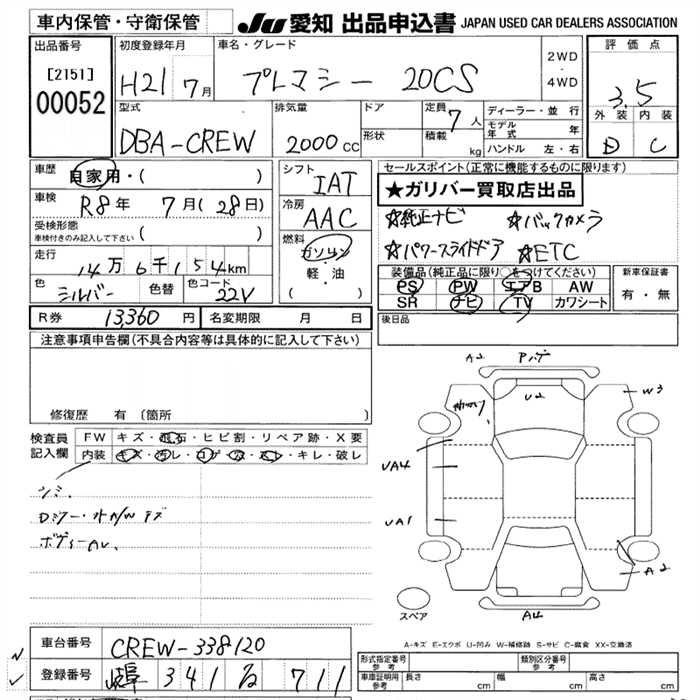 車内保管・守衛保管
JU 愛知 出品申込書 JAPAN USED CAR DEALERS ASSOCIATION
出品番号
[2151]
00052
初度登録年月
H21 7月
車名・グレード
プレマシー 20CS
2WD
・
4WD
評価点
3.5
外装 内装
D C
型式
DBA-CREW
排気量
2000cc
ドア
形状
定員 7人
積載 kg
ディーラー・並行
モデル年式 年
ハンドル 左・右
車歴
自家用・( )
車検
R8年 7月(28日)
受検形態
車検付きのみ記入して下さい ( )
走行
14万6千154km
色
シルバー
色替
色コード
22V
シフト
IAT
冷房
AAC
燃料
ガソリン
軽・油
( )
セールスポイント(正常に機能するものに限ります)
★ガリバー買取店出品
☆純正ナビ ☆バックカメラ
☆パワースライドドア ☆ETC
装備品(純正品に限り○をつけてください)
PS PW エアB AW
SR ナビ TV カワシート
新車保証書
有・無
R券 13,360円
名変期限 月 日
後日品
注意事項申告欄(不具合内容等は具体的に記入して下さい)
修復歴 有(箇所
検査員
記入欄
FW キズ・飛石・ヒビ割・リペア跡・X要
内装 キズ・汚レ・コゲ・穴・スレ・キレ・破レ
シミ
Dミラー・ホイルW キズ
ボディーAU、
A2
U2
W3
UA4
UA1
A2
A4
スペア
A-キズ E-エクボ U-凹み W-補修跡 S-サビ C-腐食 XX-交換済
車台番号
CREW-338120
登録番号
岐阜 341 る 711
形式指定番号
参考
類別区分番号
参考
車車証明用
参考
長さ cm
幅 cm
高さ cm